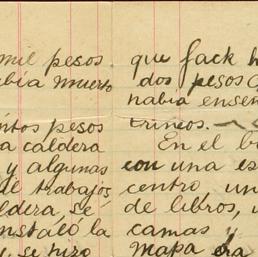 mil pesos
había muerto
ntos pesos
a caldera
y algunas
de trabajos
ldera, se
instaló la
y, se hizo
que Jack h
dos pesos
había enseñ
trineos.
En el b
con una es
centro un
de libros, u
camas y
mapa era